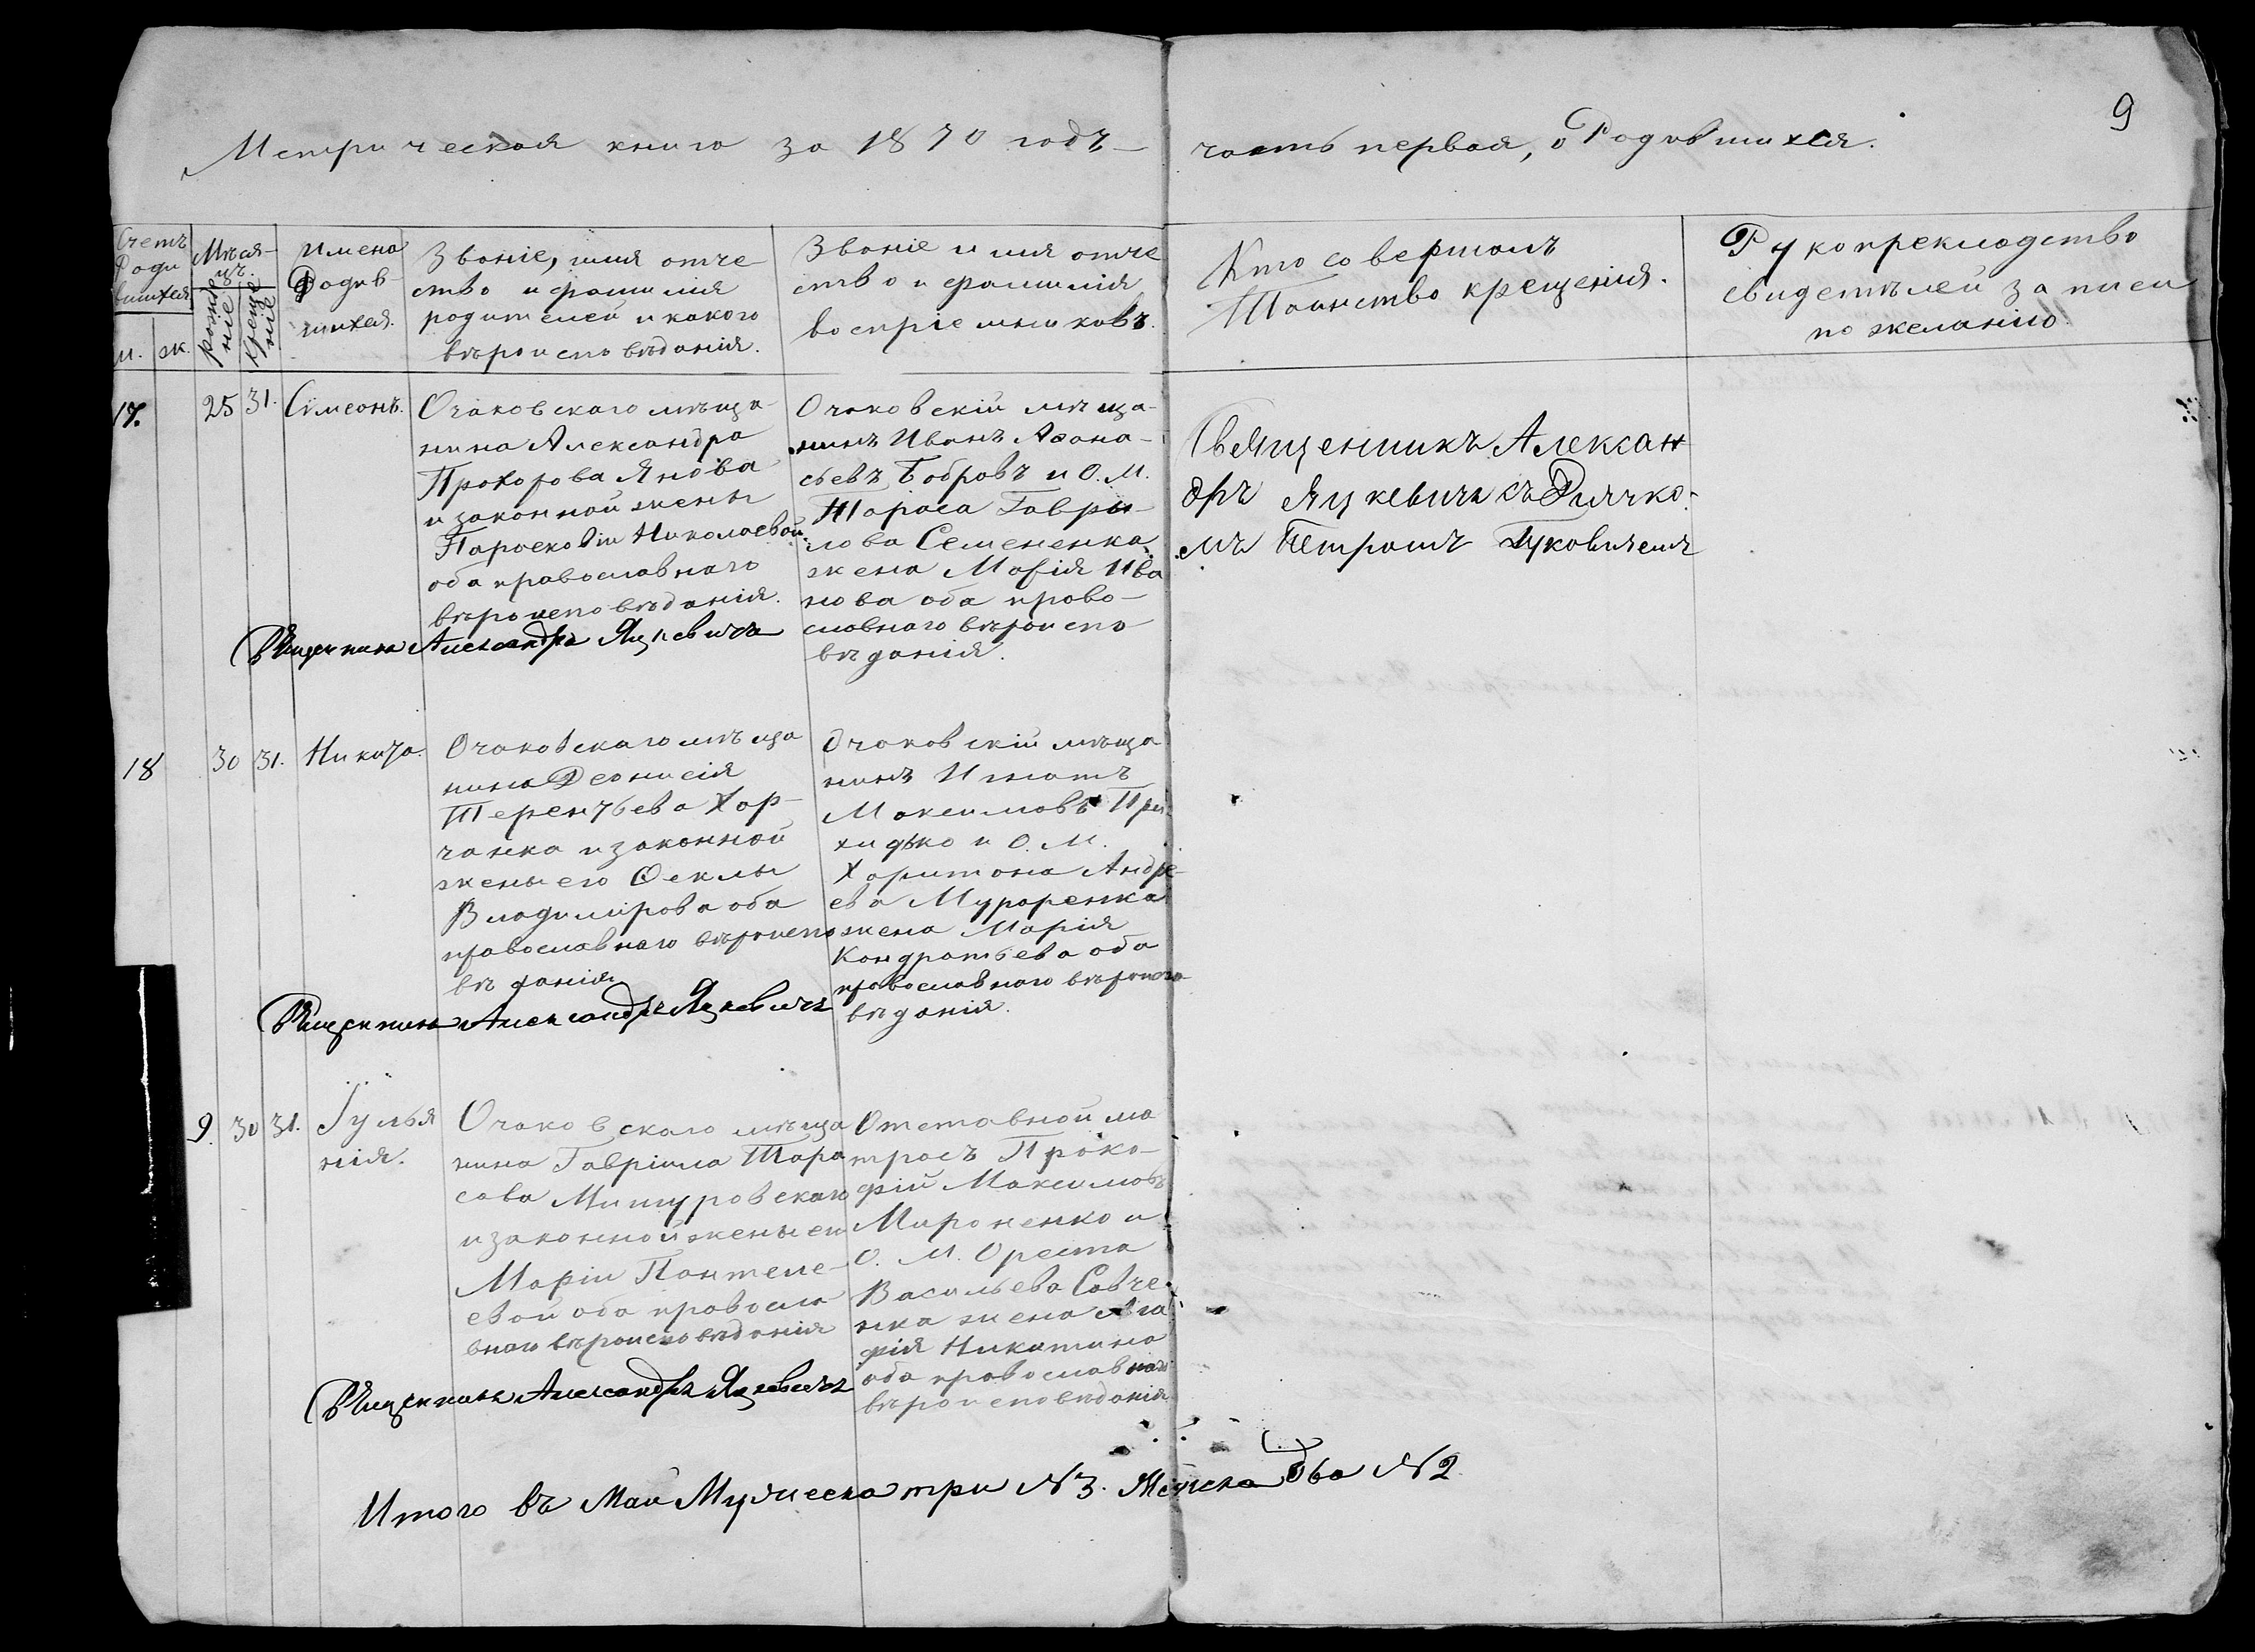 9
Метрическая книга за 1870 годъ — часть первая, о Родившихся.
Счетъ
Роди
вшихся
м. ж.
Мѣся-
цъ.
рожде
ніе
креще
ніе
Имена
Родив
шихся.
Званіе, имя отче
ство и фамилія
родителей и какого
вѣроисповѣданія.
Званіе имя отче
ство и фамилія
воспріемниковъ.
Кто совершалъ
Таинство крещенія.
Рукоприкладство
свидетѣлей записи
по желанію
17.
25
31.
Сѵмеонъ.
Очаковскаго мѣща
нина Александра
Прохорова Янова
и законной жены
Параскевіи Николаевой
оба православнаго
вѣроисповѣданія.
Священникъ Александръ Яцкевичъ
Очаковскій мѣща-
нинъ Иванъ Афана-
сьевъ Бобровъ и О. М.
Тараса Гаври-
лова Семененка
жена Марія Ива
нова оба право-
славнаго вѣроиспо
вѣданія.
Священникъ Алексан
дръ Яцкевичъ съ Дьячко-
мъ Петромъ
18
30
31.
Никита.
Очаковскаго мѣща
нина Деонисія
Терентьева Хар-
чанка и законной
жены его Ѳеклы
Владимірова оба
православнаго вѣроиспо
вѣданія
Священникъ Александръ Яцкевичъ
Очаковскій мѣща
нинъ Игнатъ
Максимовъ При
хидько и О. М.
Харитона Андре
ева Мураренка
жена Марія
Кондратьева оба
православнаго вѣроиспо
вѣданія.
9.
30
31.
Іулья
нія.
Очаковскаго мѣща
нина Гавріила Тара
сова
и законной жены его
Маріи Пантеле-
евой оба правосла
внаго вѣроисповѣданія
Священникъ Александръ Яцкевичъ
Отставной ма
тросъ Проко-
фій Максимовъ
Мироненко и
О. М. Ореста
Васильева Савче-
нка жена Ага
фія Никитина
оба православнаго
вѣроисповѣданія
Итого въ Маи Мужеска три №3. Женска два №2.